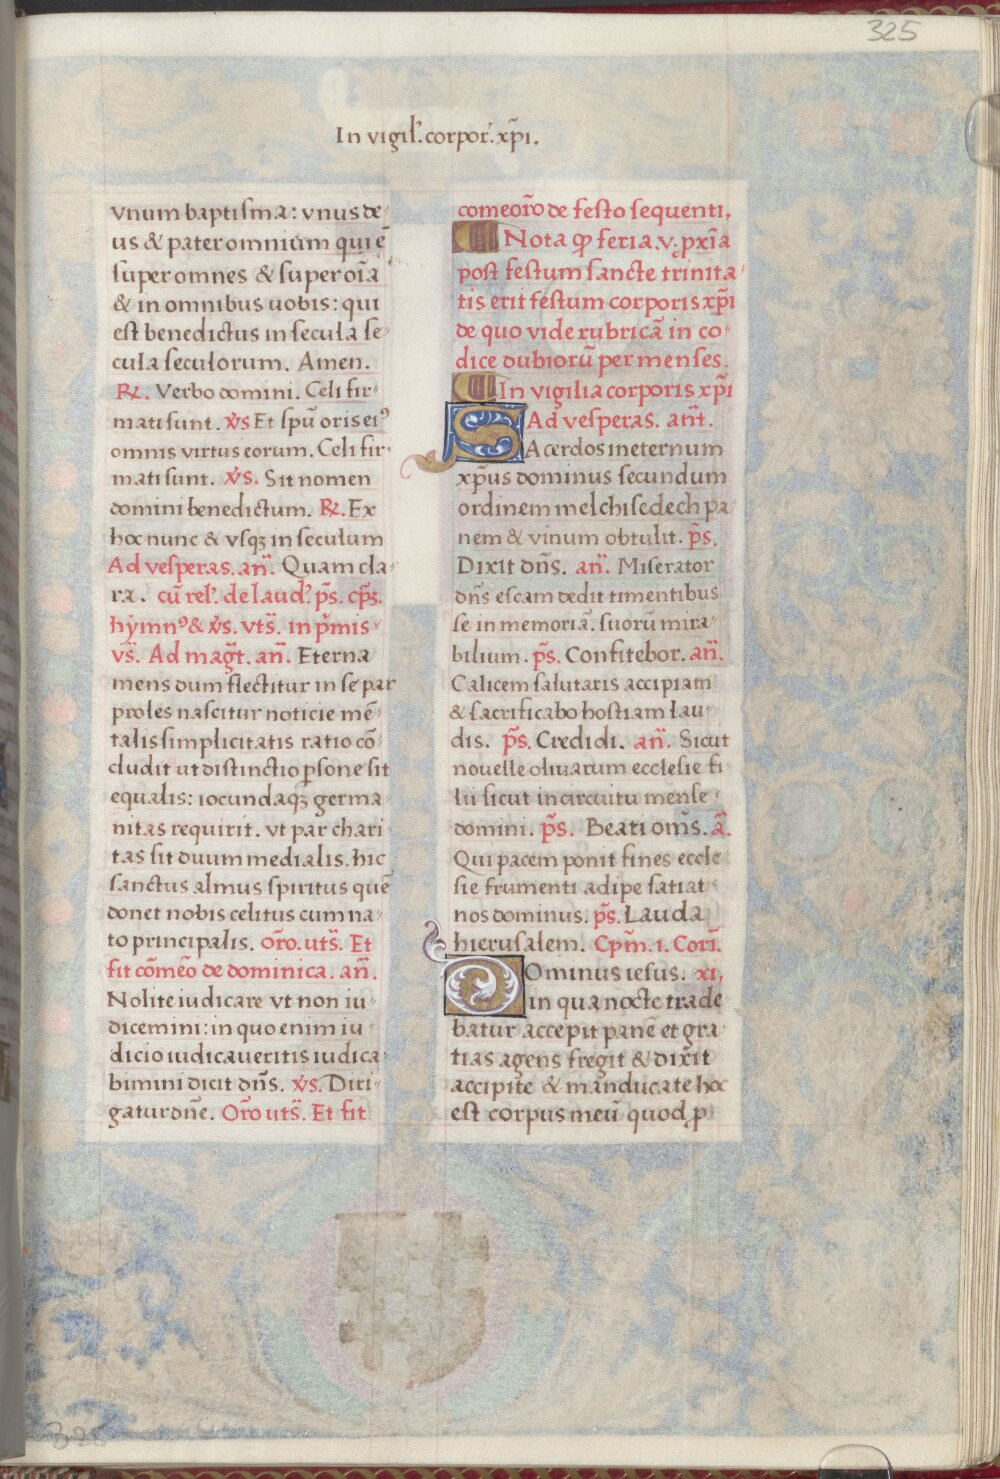 325
In vigil'. corpor'. xp̃i.
vnum baptisma: vnus de
us & pater omnium qui ẽ
super omnes & super oĩa
& in omnibus uobis: qui
est benedictus in secula se
cula seculorum. Amen.
R̷. Verbo domini. Celi fir
mati sunt. v̓s Et spũ oris eiꝰ
omnis virtus eorum. Celi fir
mati sunt. v̓s. Sit nomen
domini benedictum. R̷. Ex
hoc nunc & vsqꝫ in seculum
Ad vesperas. añ. Quam cla
ra. cũ rel'. de laud'. p̃s. cp̃ꝫ.
hymnꝰ & v̓s. vts̃. in p̓mis
vs̃. Ad mag̃t. añ. Eterna
mens dum flectitur in se par
proles nascitur noticie mẽ
talis simplicitatis ratio cõ
cludit ut distinctio ꝑsone sit
equalis: iocundaqꝫ germa
nitas requirit. vt par chari
tas sit duum medialis. hic
sanctus almus spiritus quẽ
donet nobis celitus cum na
to principalis. or̃o. uts̃. Et
fit cõmẽo de dominica. añ.
Nolite iudicare vt non iu
dicemini: in quo enim iu
dicio iudicaueritis iudica
bimini dicit dñs. v̓s. Diri
gatur dñe. Or̃o uts̃. Et fit
comeor̃o de festo sequenti.
Nota ꝙ feria. v. pxĩa
post festum sancte trinita
tis erit festum corporis xp̃i
de quo vide rubricã in co
dice dubiorũ per menses.
In vigilia corporis xp̃i
Ad vesperas. añt.
SAcerdos ineternum
xp̃us dominus secundum
ordinem melchisedech pa
nem & vinum obtulit. p̃s.
Dixit dñs. añ. Miserator
dñs escam dedit timentibus
se in memoriã. suorũ mira
bilium. p̃s. Confitebor. añ.
Calicem salutaris accipiam
& sacrificabo hostiam lau
dis. p̃s. Credidi. añ. Sicut
nouelle oliuarum ecclesie fi
lii sicut in circuitu mense
domini. p̃s. Beati om̃s. ã.
Qui pacem ponit fines eccle
sie frumenti adipe satiat
nos dominus. p̃s. Lauda
hierusalem. Cpm̃. i. Corĩ.
DOminus iesus. xi,
in qua nocte trade
batur accepit panẽ et gra
tias agens fregit & dixit
accipite & manducate hoc
est corpus meũ quod ꝓ